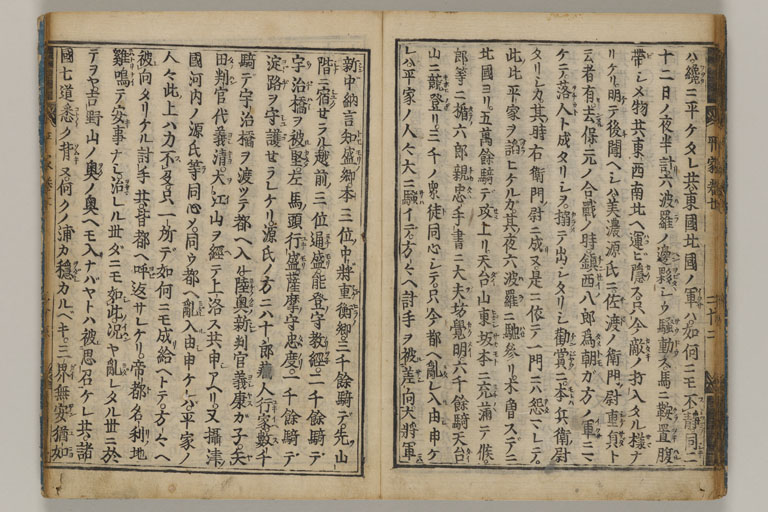 平家卷
ハ纔ニ平ケタレ共東國北國ノ軍ハ如何ニモ不靜同ニ
十二日ノ夜半計六波羅ノ邊夥シウ騷動ス馬ニ鞍置腹
帶シメ物共東西南北ヘ運ビ隱ス只今敵ノ打入タル樣ナ
リケリ明テ後聞ヘシハ美濃源氏ニ佐渡ノ衛門尉重貞ト
云者有去保元ノ合戰ノ時鎮西八郎爲朝カ方ノ軍ニマ
ケテ落人ト成タリシヲ搦テ出シタリシ勸賞ニ本兵衛尉
タリシカ其時右衛門尉ニ成又是ニ依テ一門ニハ怨マレテ。
此比平家ヲ諂ヒケルカ其夜六波羅ニ馳參リ木曾スデニ
北國ヨリ。五萬餘騎デ攻上リ天台山東坂本ニ充滿テ候。
郎等ニ楯六郎親忠手書ニ大夫坊覺明六千餘騎天台
山ニ競登リ三千ノ衆徒同心シテ。只今都ヘ亂レ入由申ケ
レハ平家ノ人々大ニ騷イデ。方々ヘ討手ヲ被差向大將軍
新中納言知盛卿本三位中將重衡卿三千餘騎デ先山
階ニ宿セラル越前三位通盛能登守教經。二千餘騎デ
宇治橋ヲ被堅左馬頭行盛薩摩守忠度。一千餘騎デ
淀路ヲ守護セラレケリ。源氏ノ方ニハ十郎藏人行家數千
騎デ宇治橋ヲ渡ツテ都ヘ入ル陸奥新判官義康カ子矢
田判官代義清。大江山ヲ經テ上洛ス共申アヘリ。又攝津
國河内ノ源氏等同心シテ同ウ都ヘ亂入由申ケレハ。平家ノ
人々此上ハ力不及只一所デ如何ニモ成給ヘトテ。方々ヘ
被向タリケル討手共皆都ヘ呼返サレケリ。帝都名利地
雞鳴テ安事ナシ治レル世ダニモ如此況ヤ亂レタル世ニ於
テヲヤ吉野山ノ奥ノ奥ヘモ入ナバヤトハ被思召ケレ共諸
國七道悉ク背ヌ何クノ浦カ穩カルヘキ。三界無安猶如